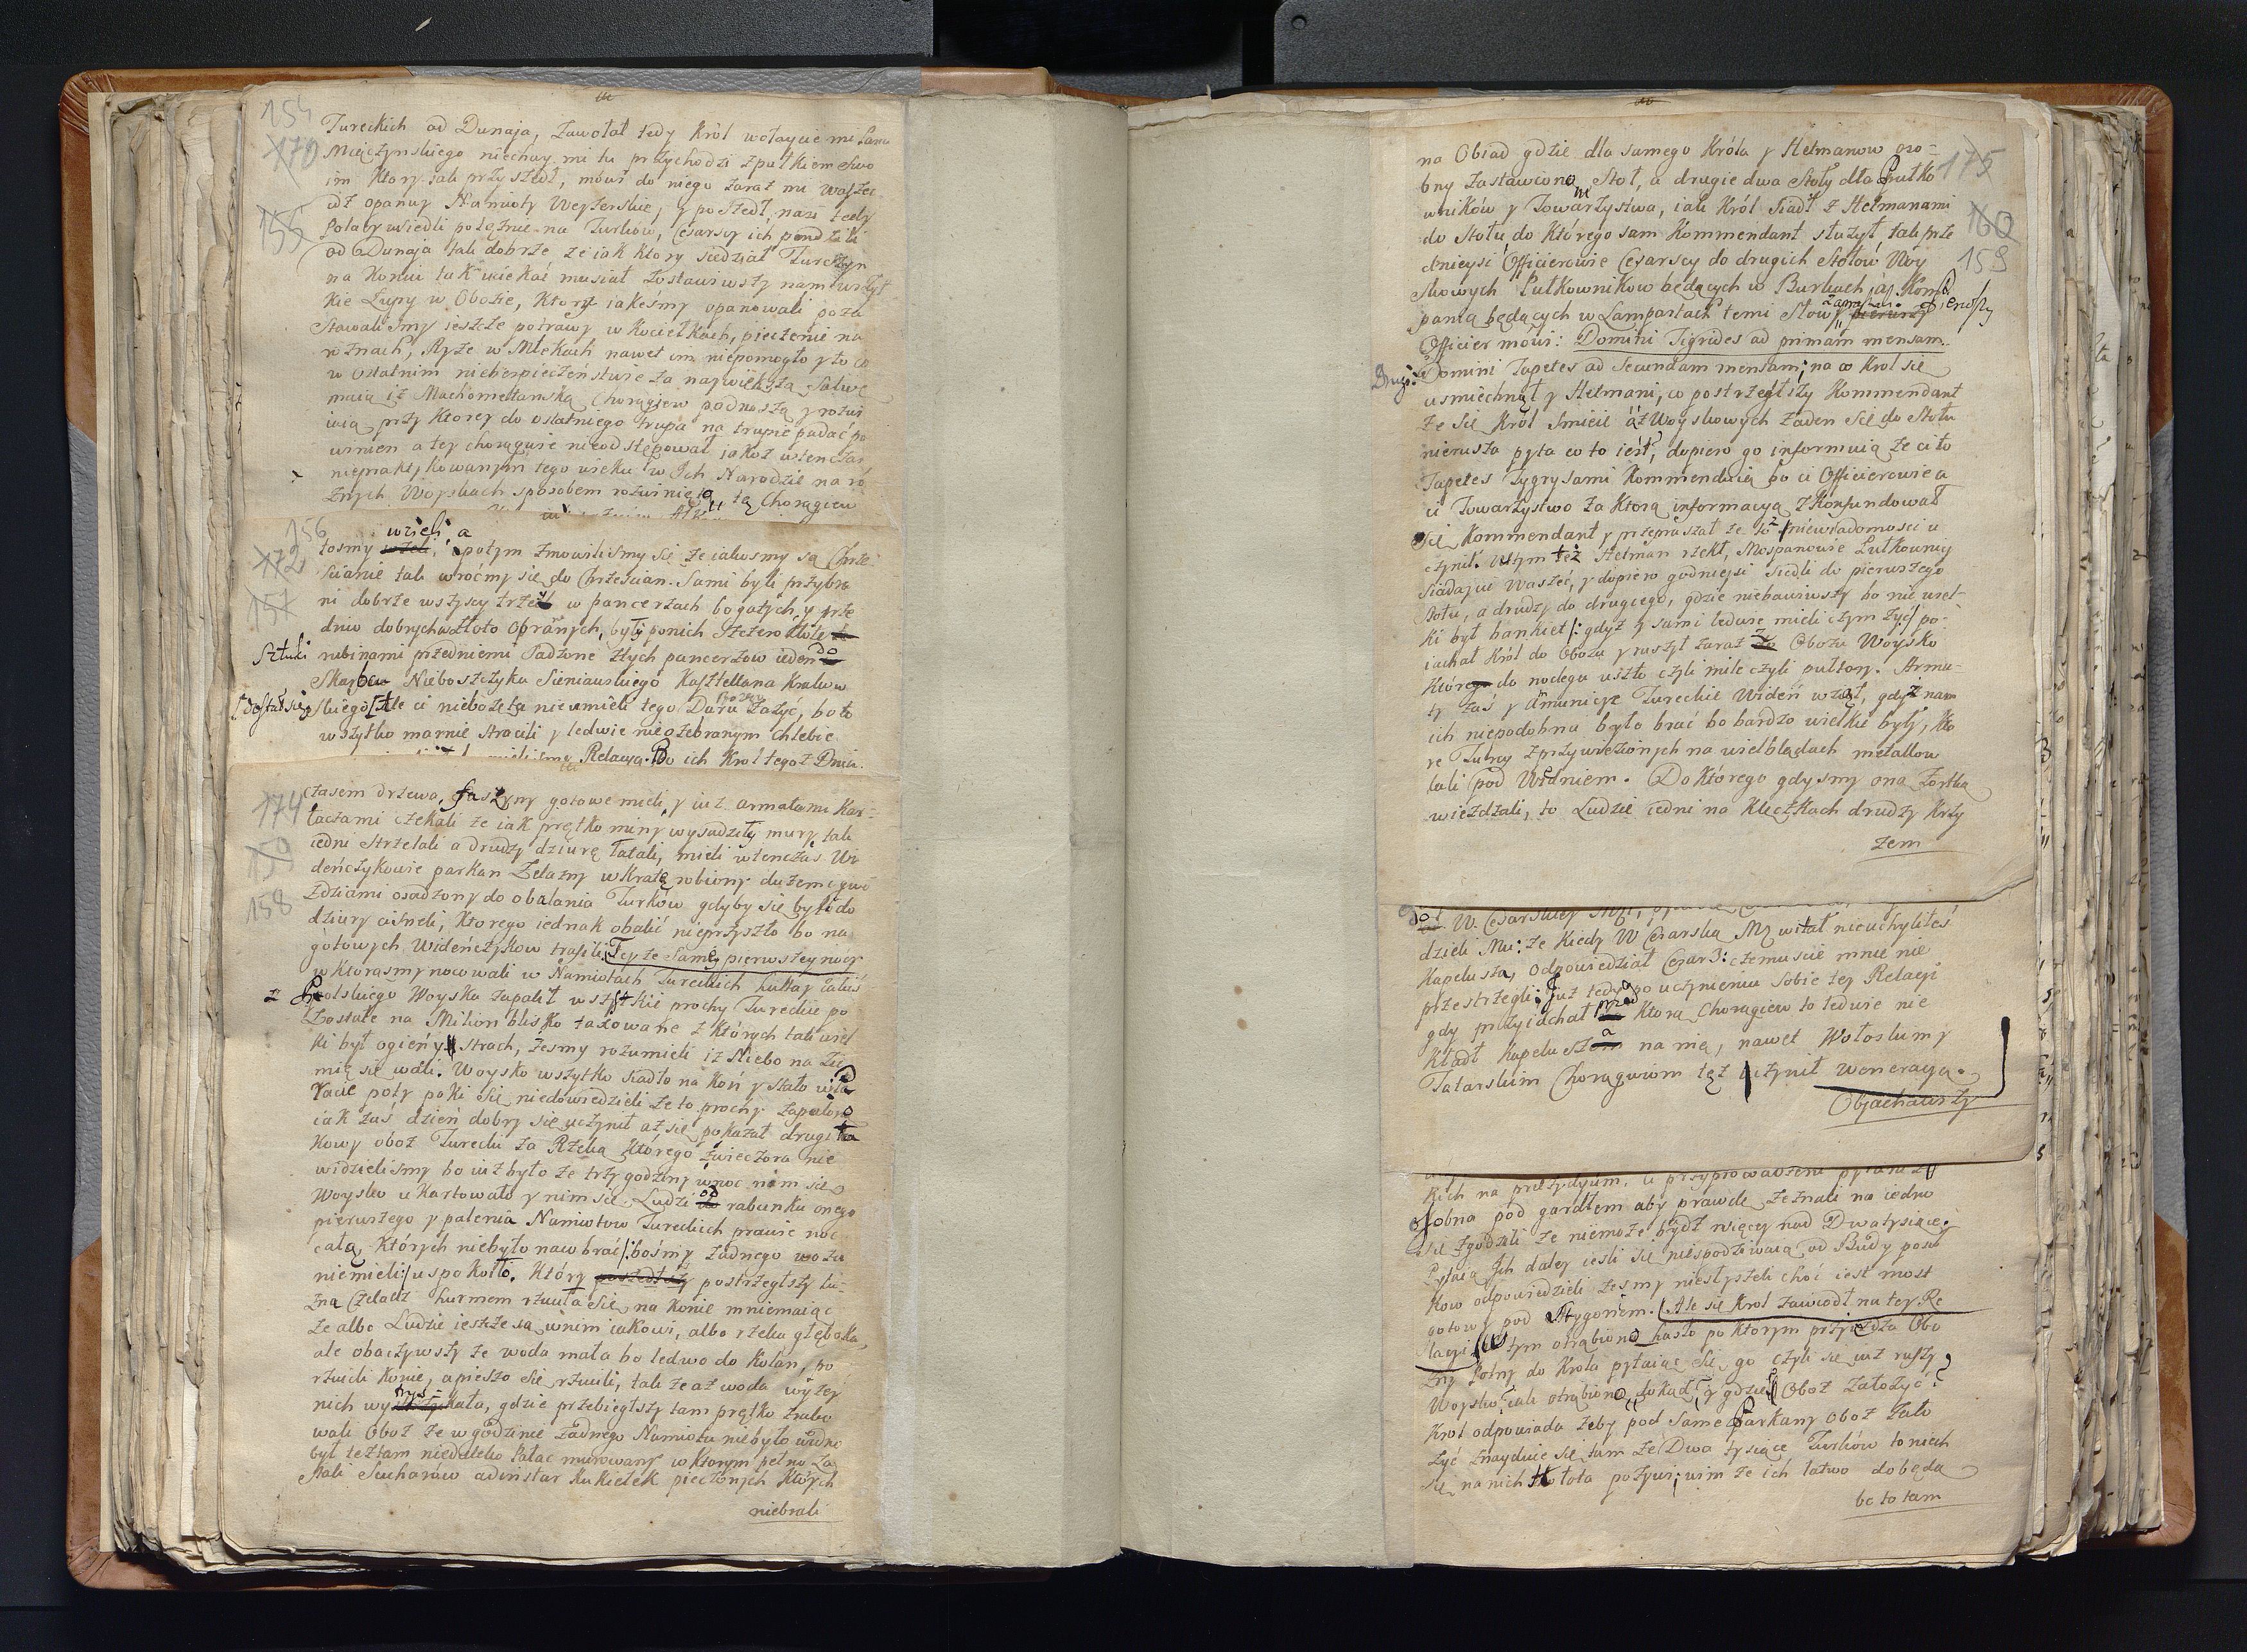 154
170
155
Tureckich od Dunaja, Zawołał tedy Król wołaycie mi Pana
Miączynskiego niechay mi tu przychodzi z pułkiem Swo
im Ktory jak przyszedł, mówi do niego Zaraz mi Waszeć
idź opanuy Namioty Wezyrskie, y poszedł, nasi tedy
Polacy wsiedli potężnie na Turków, Cesarscy ich pend zili
od Dunaja tak dobrze że iak Ktory siedział Turczyn
na Koniu tak uciekać musiał zostawiwszy nam wszyt
kie Łupy w Obozie, Który iakeśmy opanowali poza
Stawalismy ieszcze potrawy w Kociełkach, pieczenie na
rożnach, Ryże w Mlekach nawet im niepomogło y to co
w Ostatnim niebezpieczeństwie za największą Salwę
maią iż Machometańską Chorągiew podnoszą y rozwi
iaią przy Ktorey do ostatniego trupa na trupie padać po
winien a tey chorągwie nieodstępować jakoż wtenczas
niepraktykowanym tego wieku w Ich Narodzie na ró
żnych Woyskach sposobem rozwinięta tą Chorągiew
156
172
157
wzieli, a
tosmy potym zmowilismy się że iakosmy są Chrze
scianie tak wróćmy się do Chrześcian. Sami byli przybra
ni dobrze wszyscy trzey w pancerzach bogatych, y prze
dnio dobrych złoto opranych, były ponich Szczero złote
Sztuki rubinami przedniemi Sadzone z tych pancerzow ieden do
Skarbcu Nieboszczyka Sieniawskiego Kasztellana Krakow
dostał się skiego Ale ci niebożęta nieumieli tego Daru Bożey Zażyć, bo to
wszytko marnie stracili y ledwie nie ożebranym chlebie
Relacya. Bo ich Krol tegoż Dnia.
174
159
158
czasem drzewa, faszyny gotowe mieli, y iuż armatami Kar-
taczami czekali że iak prętko miny wysadziły mury, tak
iedni Strzelali a drudzy dziurę Łatali, mieli wtenczas Wi
deńczykowie parkan Żelazny w Kratę robiony dużemi gwo
zdziami osadzony do obalania Turków gdyby się byli do
dziury cisneli, Ktorego iednak obalić nieprzyszło bo na
gotowych Wideńczykow trafili. Tey że Samey pierwszey nocy
w Ktorasmy nocowali w Namiotach Tureckich hultay iakiś
z Polskiego Woyska zapalił wszystkie prochy Tureckie po
zostałe na Milion blisko taxowane z Których tak wiel
ki był ogień y strach, żesmy rozumieli iż Niebo na Zie
mię się wali. Woysko wszytko siadło na Koń y stało
poty poki Się niedowiedzieli że to prochy zapalono
iak zaś dzień dobry się uczynił aż się pokazał drugi ta
kowy oboz Turecki za Rzeką Którego z wieczora nie
widzielismy bo iuż było ze trzy godziny w noc nim się
Woysko ukartowało y nim się Ludzi od rabunku onego
pierwszego y palenia Namiotow Tureckich prawie noc
całą, Których niebyło naw brać/: bośmy żadnego wozu
niemieli:/ uspokoiło. Który postrzegłszy lu-
zna Czeladz hurmem rzuciła się na Konie mniemaiąc
że albo Ludzie ieszcze są w nim iakowi, albo rzeka głęboka,
ale obaczywszy że woda mała bo ledwo do Kolan, po
rzucili Konie, a pieszo się rzucili, tak że aż woda wyżey
nich wytryskała, gdzie przebiegłszy tam prętko zrabo
wali Oboz że w godzinie żadnego Namiotu niebyło widno
był też tam niedaleko Pałac murowany w Ktorym pełno Za
stali Sucharów adinstar Kukiełek pieczonych Których
niebrali
175
160
159
na Obiad gdzie dla samego Króla y Hetmanow oso-
bny Zastawiono Stoł, a drugie dwa Stoły dla Pułko
wników y Towarzystwa, iak Król siadł z Hetmanami
do Stołu, do Którego sam Kommendant służył, tak prze
dnieysi Officierowie Cesarscy do drugich Stołów Woy
skowych Pułkownikow będących w Burkach, á Kom
panią będących w Lampartach temi Słowy zaprasza: Pierwszy
Officier mówi: Domini Tigrides ad primam mensam.
Drugi: Domini Tapetes ad Secundam mensam; na co Krol się
usmiechnął y Hetmani, co postrzegłszy Kommendant
że się Król śmieie aż Woyskowych żaden się do Stołu
nierusza pyta co to iest? dopiero go informuią że ci to
Tapetes Tygrysami Kommenduią bo ci Officierowie a
ci Towarzystwo za Ktorą informacyą zkonfundował
się Kommendant y przepraszał że to z niewiadomosci u
czynił. Wtym też Hetman rzekł, Mospanowie Pułkownicy
Siadajcie Waszeć, y dopiero godnieysi siedli do pierwszego
stołu, a drudzy do drugiego, gdzie niebawiwszy bo nie wiel-
ki był bankiet/: gdyż y sami ledwie mieli czym żyć/ po-
iachał Król do Obozu y ruszył zaraz z Obozu Woysko
Które do noclegu uszło czyli milę czyli pułtory. Arma-
ty zaś y Amunicye Tureckie Wideń wziął, gdyż nam
ich niepodobna było brać bo bardzo wielkie były, Kto
re Turcy z przywiezionych na wielblądach metallow
lali pod Widniem. Do Którego gdysmy ona Fortka
wieżdżali, to Ludzie iedni na Klęczkach drudzy Krzy
żem
W. Cesarskiey
dzieli Mu: że Kiedy W Cesarska M witał nieuchyliłeś
Kapelusza, Odpowiedział Cesarz: czemuscie mnie nie
przestrzegli; Już tedy po uczynieniu Sobie tey Relacyi
gdy przyiachał przed Ktora Chorągiew to ledwie nie
Kładł Kapelusza na nią, nawet Wołoskim y
Tatarskim Chorągwiom tęż uczynił weneracyą.
Objachawszy
kich na prezydyum, a przyprowadzeni pytani z
osobna pod gardłem aby prawdę zeznali na iedno
się zgodzili że niemoże bydź więcy nad Dwatysiące.
Pytaią Ich daley iesli się niespodziewaią od Budy posił
kow odpowiedzieli żesmy niesłyszeli choć iest most
gotowy pod Strygoniem. Ale się Krol zawiodł na tey Re
lacyi wtym otrąbiono hasło po Ktorym przyieżdża Obo
zny Polny do Krola pytaiąc się go czyli się iuż ruszy
Woysko? iak otrąbiono, dokąd? y gdzie Oboz Założyć?
Krol odpowiada żeby pod same Parkany Oboz Zało
żyć znayduie się tam ze Dwa tysiące Turków to niech
się na nich hołota pożywi; wim że ich łatwo dobędą
bo to tam